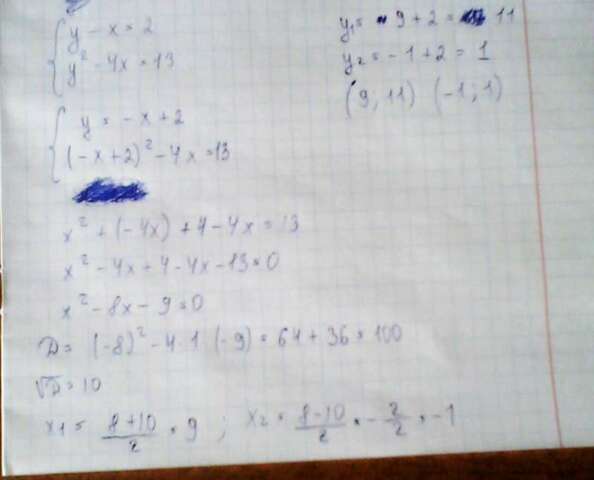 y - x = 2
y² - 4x = 13
y = -x + 2
(-x + 2)² - 4x = 13
x² + (-4x) + 4 - 4x = 13
x² - 4x + 4 - 4x - 13 = 0
x² - 8x - 9 = 0
D = (-8)² - 4 · 1 · (-9) = 64 + 36 = 100
√D = 10
x₁ = 8+10/2 = 9 ; x₂ = 8-10/2 = -2/2 = -1
y₁ = 9 + 2 = 11
y₂ = -1 + 2 = 1
(9; 11) (-1; 1)